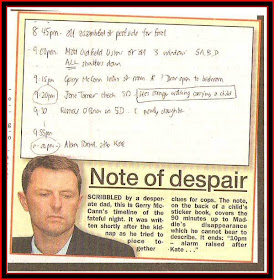 8.45pm - all assembled at poolside for food
9.00pm - Matt Oldfield listen at all 3 windows 5A,B,D
ALL shutters down
9.15pm - Gerry McCann looks at room A ? Door open to bedroom
9.20pm - Jane Tanner checks 5D - [sees stranger walking carrying a child]
9.30 - Russell O'Brien in 5D. poorly daughter
9.55pm
10.00pm - Alarm raised after Kate
Note of despair
SCRIBBLED by a desper-
ate dad, this is Gerry Mc-
Cann's timeline of the
fateful night. It was writ-
ten shortly after the kid-
nap as he tried to
piece to-
gether
clues for cops. The note,
on the back of a child's
sticker book, covers the
90 minutes up to Mad-
die's disappearance
which he cannot bear to
describe. It ends: "10pm
– alarm raised after
Kate . . ."